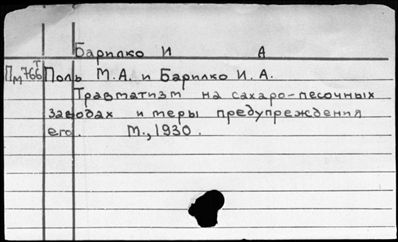 Барилко И А
Пм766т Поль М.А. и Барилко И.А.
Травматизм на сахаро-песочных
заводах и меры предупреждения
его. М., 1930.